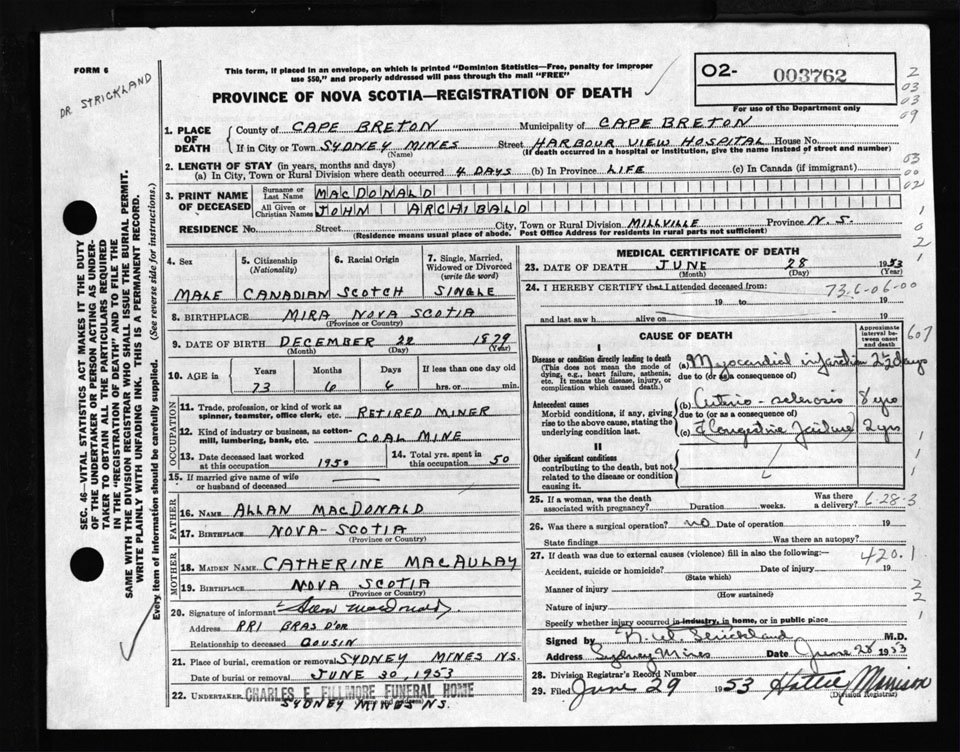 FORM 6
DR. STRICKLAND
This form, if placed in an envelope, on which is printed "Dominion Statistics—Free, penalty for improper
use $50," and properly addressed will pass through the mail "FREE"
PROVINCE OF NOVA SCOTIA—REGISTRATION OF DEATH
02- 003762
For use of the Department only
2
03
03
09
03
00
02
1
0
2
SEC. 46—VITAL STATISTICS ACT MAKES IT THE DUTY
OF THE UNDERTAKER OR PERSON ACTING AS UNDER-
TAKER TO OBTAIN ALL THE PARTICULARS REQUIRED
IN THE "REGISTRATION OF DEATH" AND TO FILE THE
SAME WITH THE DIVISION REGISTRAR WHO SHALL ISSUE THE BURIAL PERMIT.
WRITE PLAINLY WITH UNFADING INK. THIS IS A PERMANENT RECORD.
Every item of information should be carefully supplied. (See reverse side for instructions.)
1. PLACE OF DEATH
County of CAPE BRETON Municipality of CAPE BRETON
If in City or Town SYDNEY MINES Street HARBOUR VIEW HOSPITAL House No.
(Name) (If death occurred in a hospital or institution, give the name instead of street and number)
2. LENGTH OF STAY (in years, months and days)
(a) In City, Town or Rural Division where death occurred 4 DAYS (b) In Province LIFE (c) In Canada (if immigrant)
3. PRINT NAME OF DECEASED
3. Surname or Last Name MACDONALD
All Given or Christian Names JOHN ARCHIBALD
RESIDENCE No. Street City, Town or Rural Division MILLVILLE Province N.S.
(Residence means usual place of abode. Post Office Address for residents in rural parts not sufficient)
4. Sex
MALE
5. Citizenship (Nationality)
CANADIAN
6. Racial Origin
SCOTCH
7. Single, Married, Widowed or Divorced (write the word)
SINGLE
8. BIRTHPLACE MIRA NOVA SCOTIA
(Province or Country)
9. DATE OF BIRTH DECEMBER 22 1879
(Month) (Day) (Year)
10. AGE in Years Months Days If less than one day old
73 6 6 hrs. or min.
OCCUPATION
11. Trade, profession, or kind of work as spinner, teamster, office clerk, etc. RETIRED MINER
12. Kind of industry or business, as cotton-mill, lumbering, bank, etc. COAL MINE
13. Date deceased last worked at this occupation 1950
14. Total yrs. spent in this occupation 50
15. If married give name of wife or husband of deceased
FATHER
16. NAME ALLAN MACDONALD
17. BIRTHPLACE NOVA-SCOTIA
(Province or Country)
MOTHER
18. MAIDEN NAME CATHERINE MACAULAY
19. BIRTHPLACE NOVA SCOTIA
(Province or Country)
20. Signature of informant MacDonald
Address RR1 BRAS D'OR
Relationship to deceased COUSIN
21. Place of burial, cremation or removal SYDNEY MINES NS.
Date of burial or removal JUNE 30, 1953
22. UNDERTAKER CHARLES E. FILLMORE FUNERAL HOME
SYDNEY MINES NS.
MEDICAL CERTIFICATE OF DEATH
23. DATE OF DEATH JUNE 28 1953
(Month) (Day) (Year)
24. I HEREBY CERTIFY that I attended deceased from:
73.6-06-00
19 to 19
and last saw h alive on 19
CAUSE OF DEATH
Approximate interval between onset and death
607
I
Disease or condition directly leading to death
(This does not mean the mode of dying, e.g., heart failure, asthenia, etc. It means the disease, injury, or complication which caused death.)
(a) Myocardial infarction 2½ days
due to (or as a consequence of)
Antecedent causes
Morbid conditions, if any, giving rise to the above cause, stating the underlying condition last.
(b) Arterio-sclerosis 8 yrs
due to (or as a consequence of)
(c) Congestive failure 2 yrs
II
Other significant conditions
contributing to the death, but not related to the disease or condition causing it.
25. If a woman, was the death associated with pregnancy? Duration weeks. Was there a delivery?
6-28-3
26. Was there a surgical operation? no Date of operation 19
State findings Was there an autopsy?
27. If death was due to external causes (violence) fill in also the following:
420.1
Accident, suicide or homicide? Date of injury 19
(State which)
Manner of injury
(How sustained)
Nature of injury
Specify whether injury occurred in industry, in home, or in public place
Signed by Strickland M.D.
Address Sydney Mines Date June 28 1953
28. Division Registrar's Record Number
29. Filed June 29 1953 Hattie Morrison
(Division Registrar)